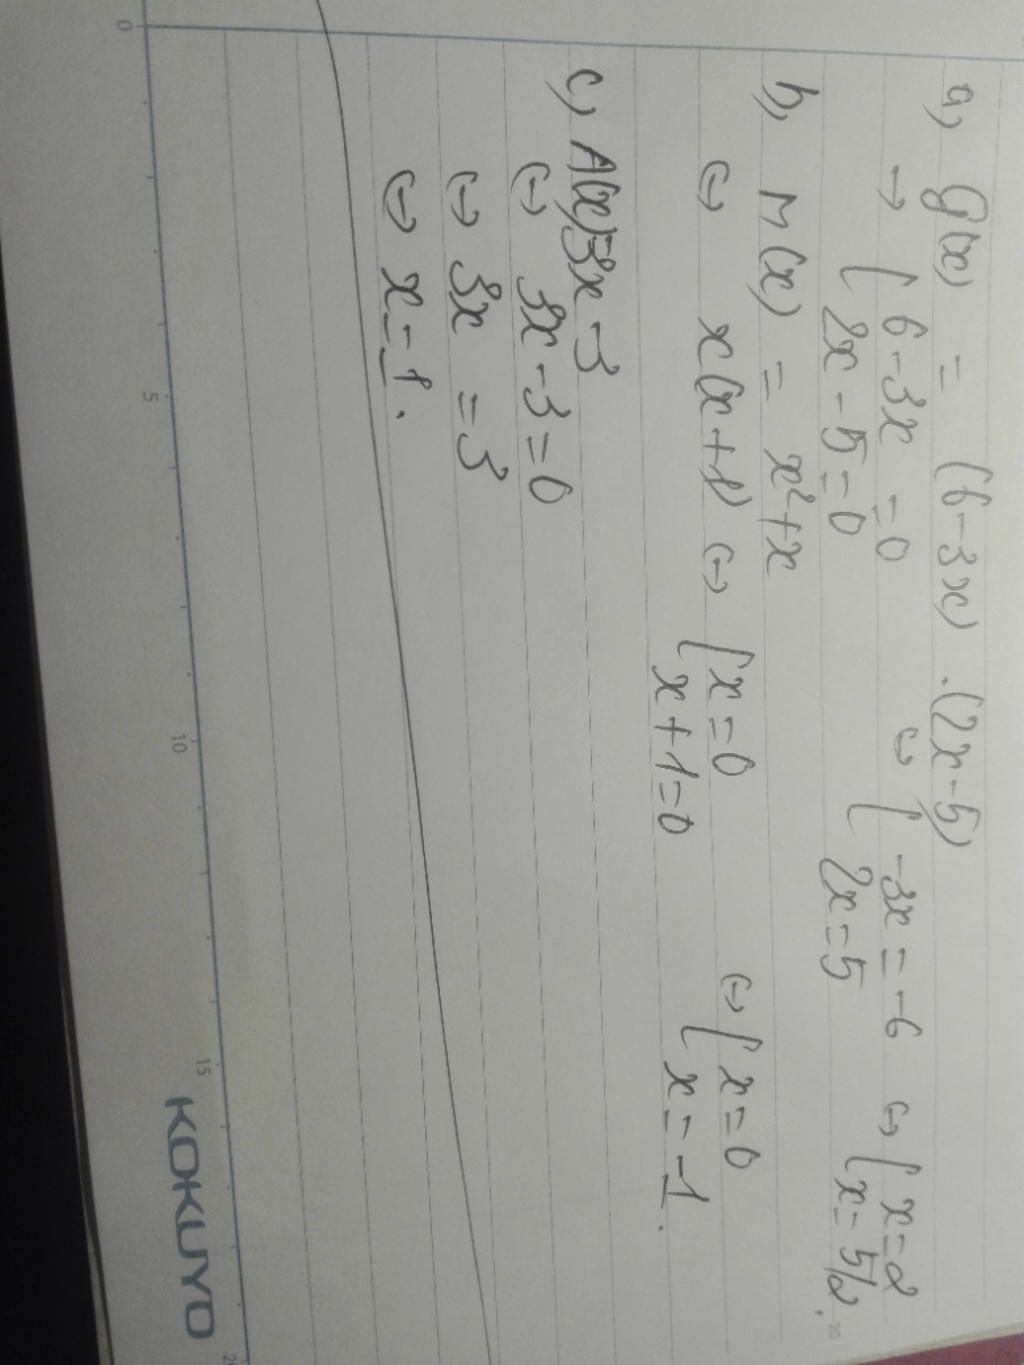 a) G(x) = (6-3x).(2x-5)
→ [ 6-3x = 0 ↔ [ -3x = -6 ↔ [ x=2
2x-5=0 2x=5 x=5/2.
b) M(x) = x²+x
↔ x(x+1) ↔ [ x=0 ↔ [ x=0
x+1=0 x=-1.
c) A(x)=3x-3
↔ 3x-3=0
↔ 3x = 3
↔ x=1.
0 5 10 15 20
KOKUYO
20